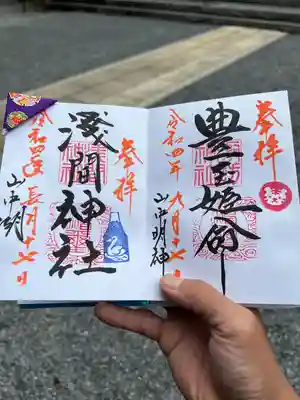 奉拝
豊玉姫命
令和四年九月十七日
山中明神
奉拝
淺間神社
令和四年長月十七日
山中湖